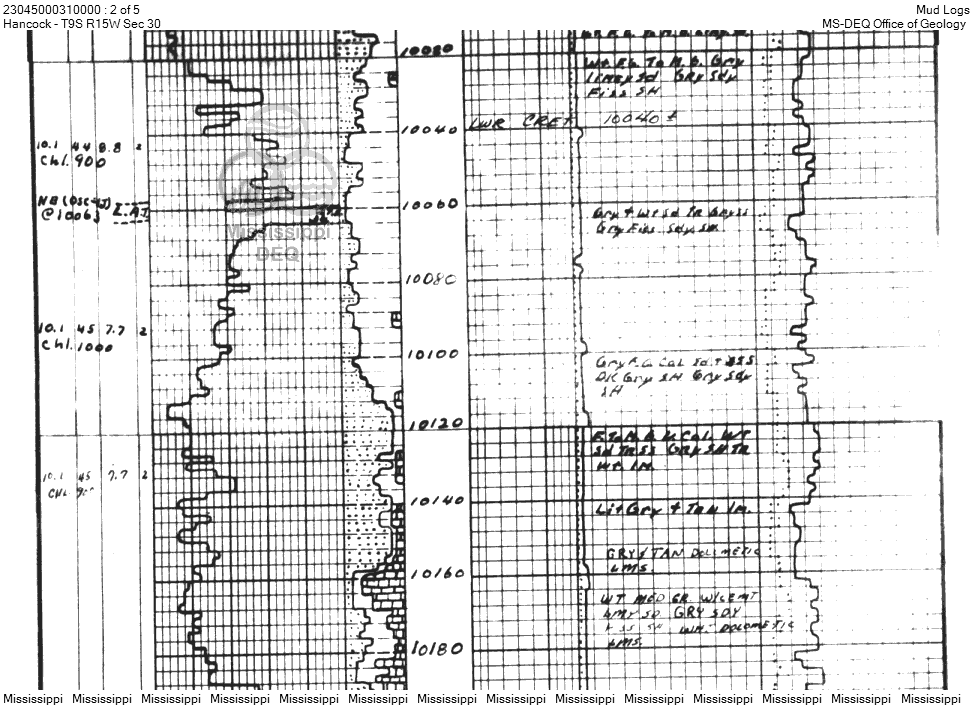 23045000310000 : 2 of 5
Mud Logs
Hancock - T9S R15W Sec 30
MS-DEQ Office of Geology
10020
Wt. F.G. To M.G. Gry
Limey Sd Gry Sdy
Fiss SH
LWR CRET 10040 ±
10040
10.1 44 8.8 2
Chl. 900
10060
@ 10063
Gry Fiss. Sdy. SH.
Mississippi
DEQ
10080
10.1 45 7.7 2
Chl. 1000
10100
Gry F.G. Cal Sd
DK Gry SH Gry Sdy
SH
10120
F. To M. G. V. Cal. WT
Sd Gry SH TR
WT lm.
10.1 45 7.7 2
CHL
10140
Lit Gry + Tan lm.
GRY & TAN DOLOMETIC
LMS.
10160
WT MED GR. W/CEMT
LMY SD GRY SDY
SH WH. DOLOMETIC
LMS.
10180
Mississippi Mississippi Mississippi Mississippi Mississippi Mississippi Mississippi Mississippi Mississippi Mississippi Mississippi Mississippi Mississippi Mississippi